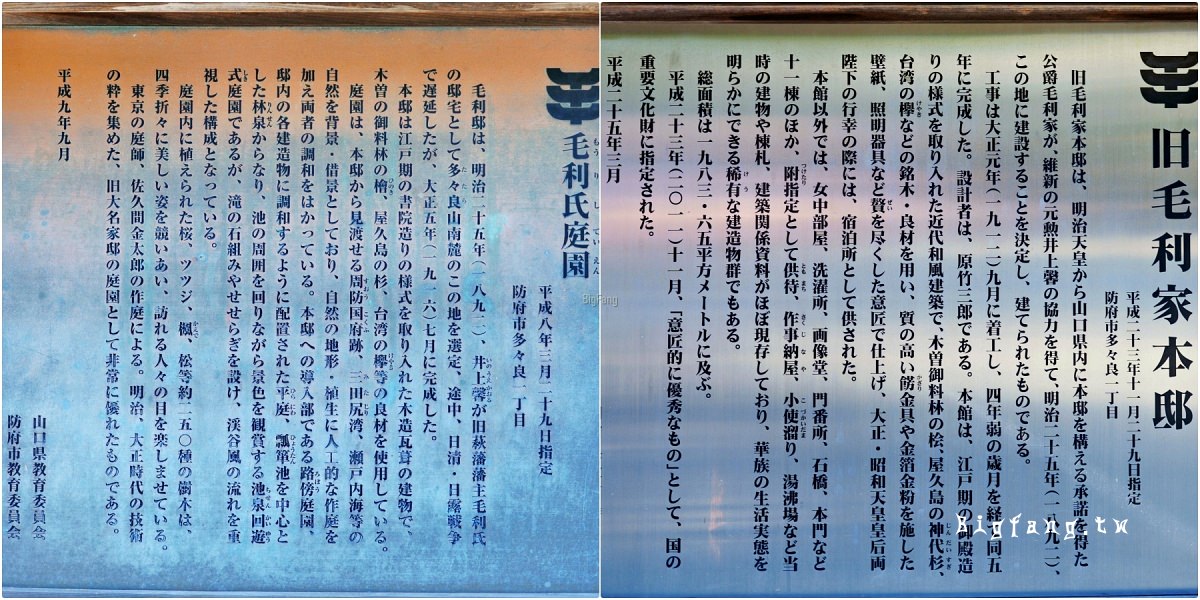 毛利氏庭園
もうりしていえん
平成八年三月二十九日指定
防府市多々良一丁目
毛利邸は、明治二十五年(一八九二)、井上馨が旧萩藩藩主毛利氏
の邸宅として多々良山南麓のこの地を選定、途中、日清・日露戦争
で遅延したが、大正五年(一九一六)七月に完成した。
本邸は江戸期の書院造りの様式を取り入れた木造瓦葺の建物で、
木曽の御料林の檜、屋久島の杉、台湾の欅等の良材を使用している。
庭園は、本邸から見渡せる周防国府跡、三田尻湾、瀬戸内海等の
自然を背景・借景としており、自然の地形・植生に人工的な作庭を
加え両者の調和をはかっている。本邸への導入部である路傍庭園、
邸内の各建造物に調和するように配置された平庭、瓢箪池を中心と
した林泉からなり、池の周囲を回りながら景色を観賞する池泉回遊
式庭園であるが、滝の石組みやせせらぎを設け、渓谷風の流れを重
視した構成となっている。
庭園内に植えられた桜、ツツジ、楓、松等約二五〇種の樹木は、
四季折々に美しい姿を競いあい、訪れる人々の目を楽しませている。
東京の庭師、佐久間金太郎の作庭による。明治、大正時代の技術
の粋を集めた、旧大名家邸の庭園として非常に優れたものである。
平成九年九月
山口県教育委員会
防府市教育委員会
BigFang
旧毛利家本邸
平成二十三年十一月二十九日指定
防府市多々良一丁目
旧毛利家本邸は、明治天皇から山口県内に本邸を構える承諾を得た
公爵毛利家が、維新の元勲井上馨の協力を得て、明治二十五年(一八九二)、
この地に建設することを決定し、建てられたものである。
工事は大正元年(一九一二)九月に着工し、四年弱の歳月を経て同五
年に完成した。設計者は、原竹三郎である。本館は、江戸期の御殿造
りの様式を取り入れた近代和風建築で、木曽御料林の桧、屋久島の神代杉、
台湾の欅などの銘木・良材を用い、質の高い餝金具や金箔金粉を施した
壁紙、照明器具など贅を尽くした意匠で仕上げ、大正・昭和天皇皇后両
陛下の行幸の際には、宿泊所として供された。
本館以外では、女中部屋、洗濯所、画像堂、門番所、石橋、本門など
十一棟のほか、附指定として供待、作事納屋、小使溜り、湯沸場など当
時の建物や棟札、建築関係資料がほぼ現存しており、華族の生活実態を
明らかにできる稀有な建造物群でもある。
総面積は一九八三・六五平方メートルに及ぶ。
平成二十三年(二〇一一)十一月、「意匠的に優秀なもの」として、国の
重要文化財に指定された。
平成二十五年三月
Bigfang.tw